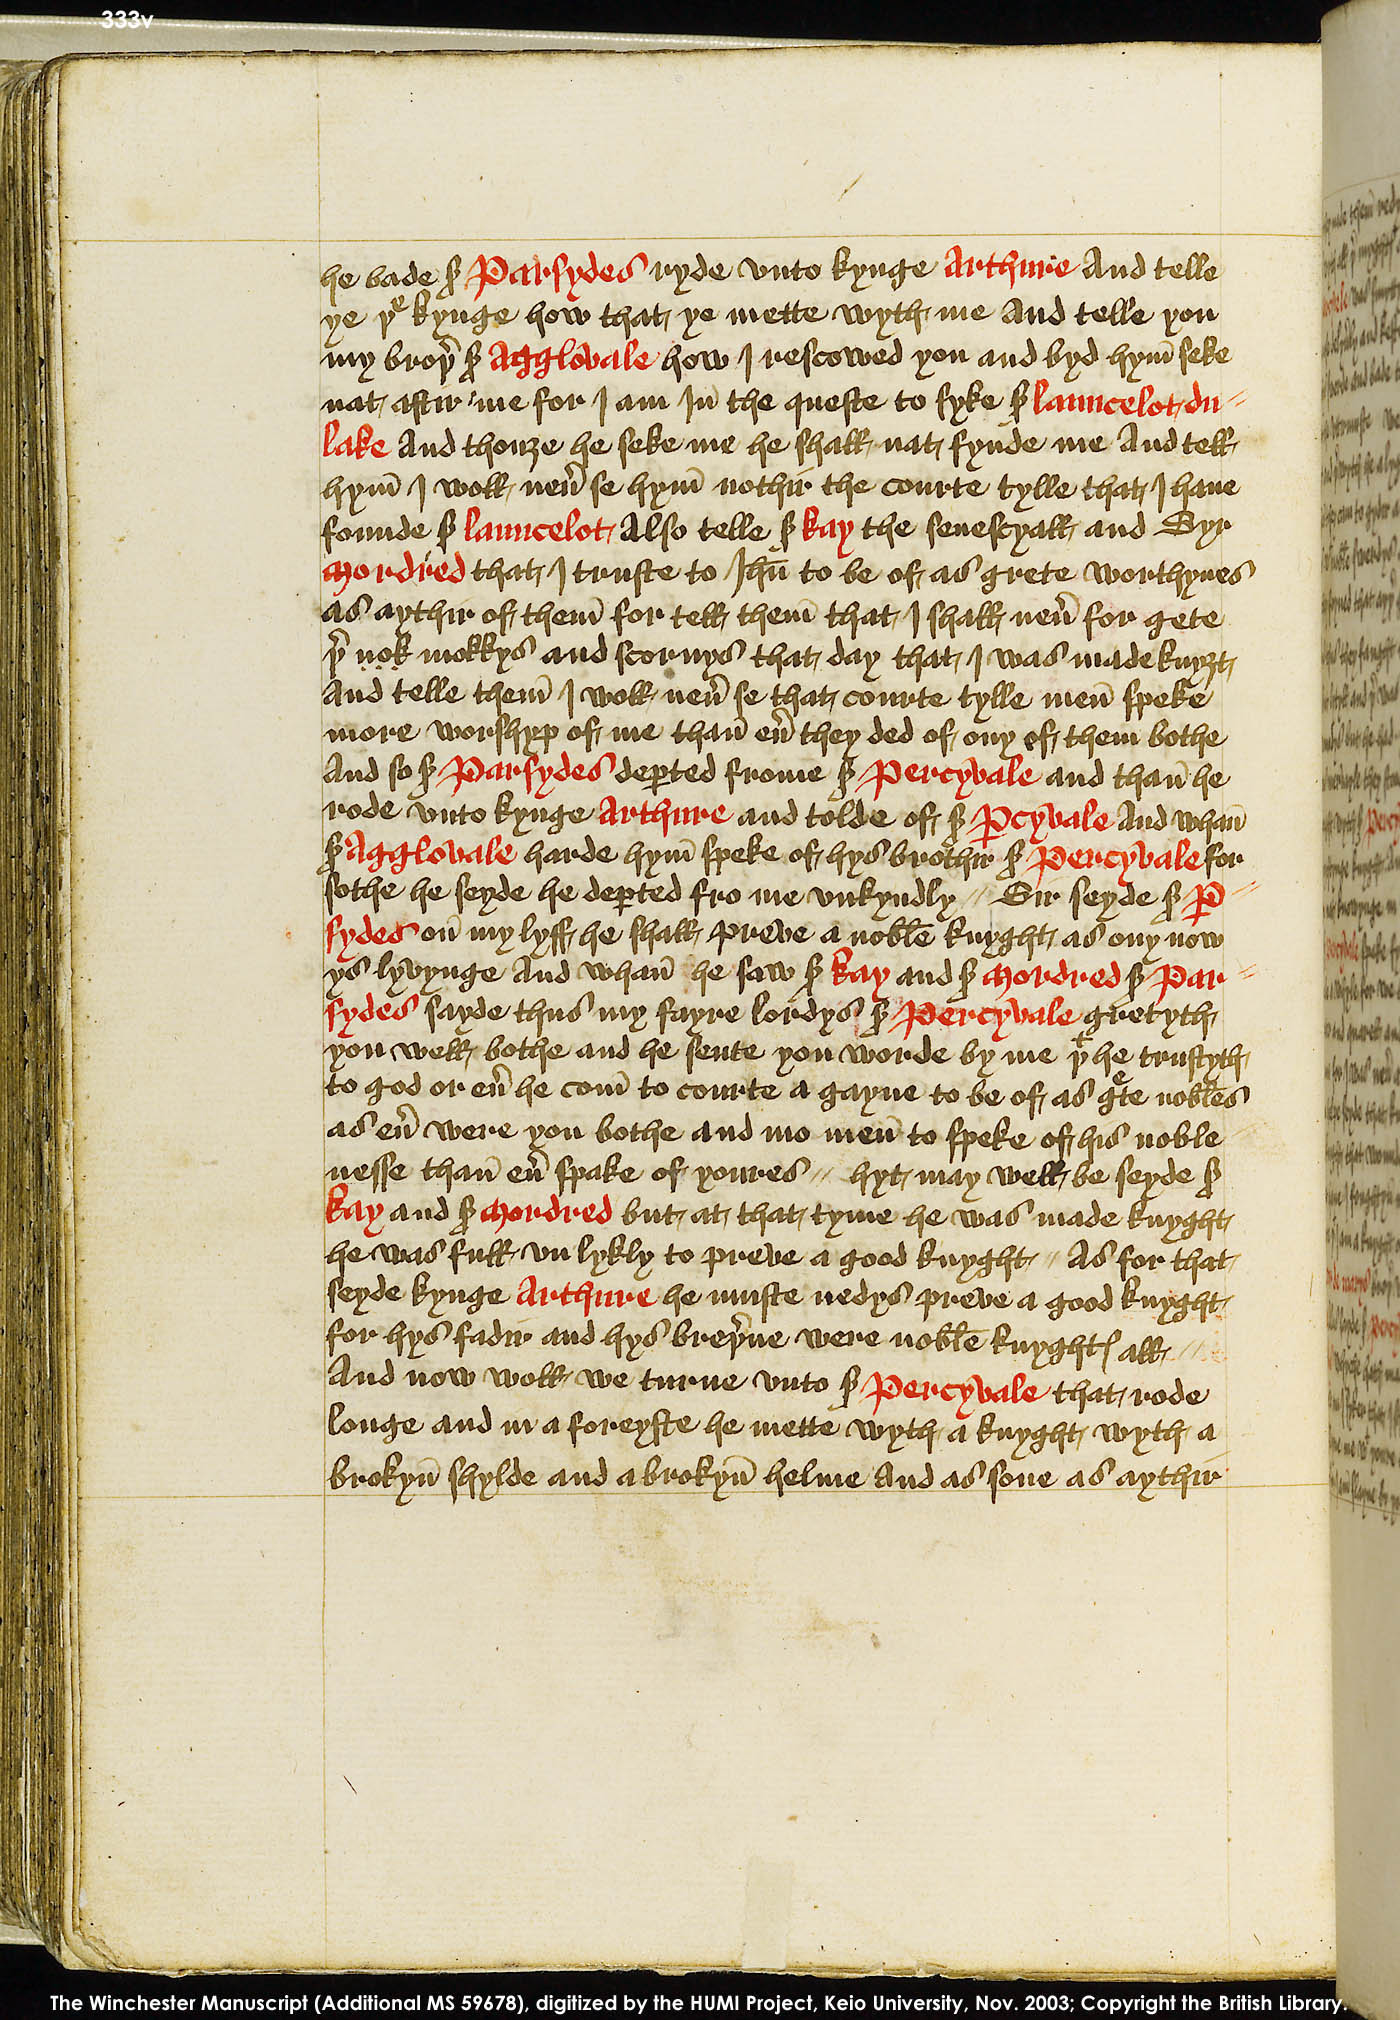 333v
he bade s̃ Parsydes ryde vnto kynge Arthure And telle
ye þe kynge how that ye mette wyth me And telle you
my broþ̃ s̃ Agglovale how I rescowed you and byd hym̄ seke
nat aftir me for I am In̄ the queste to syke s̃ launcelot du //
lake And thouȝe he seke me he shall nat fynde me And tell
hym̄ I woll neũ se hym̄ nothir the courte tylle that I haue
founde s̃ launcelot Also telle s̃ kay the senescyall and Syr
Mordred that I truste to Jhū to be of as grete worthynes
as aythir of them̄ for tell them̄ that I shall neũ for gete
þ̃ nok mokkys and scornys that day that I was made knyȝt
And telle them̄ I woll neũ se that courte tylle men̄ speke
more worshyp of me than̄ eũ they ded of ony of them bothe
And so s̃ Parsydes deꝑted frome s̃ Percyvale and than̄ he
rode vnto kynge Arthure and tolde of s̃ Ꝑcyvale And whan̄
s̃ Agglovale harde hym̄ speke of hys brothir s̃ Percyvale for
sothe he seyde he deꝑted fro me vnkyndly // Sir seyde s̃ Ꝑ //
sydes on̄ my lyff he shall preve a noble knyght as ony now
ys lyvynge And whan̄ he saw s̃ kay and s̃ Mordred s̃ Par //
sydes sayde thus my fayre lordys s̃ Percyvale gretyth
you well bothe and he sente you worde by me þt he trustyth
to god or eũ he com̄ to courte a gayne to be of as gete nobles
as eũ were you bothe and mo men̄ to speke of his noble
nesse than̄ eũ spake of youres // hyt may well be seyde s̃
kay and s̃ Mordred but at that tyme he was made knyght
he was full vn lykly to preve a good knyght // As for that
seyde kynge Arthure he muste nedys preve a good knyght
for hys fadir and hys breþ̃ne were noble knyghtꝭ all //
And now woll we turne vnto s̃ Percyvale that rode
longe and in a foreyste he mette wyth a knyght wyth a
brokyn̄ shylde and a brokyn̄ helme And as sone as aythir
The Winchester Manuscript (Additional MS 59678), digitized by the HUMI Project, Keio University, Nov. 2003; Copyright the British Library.